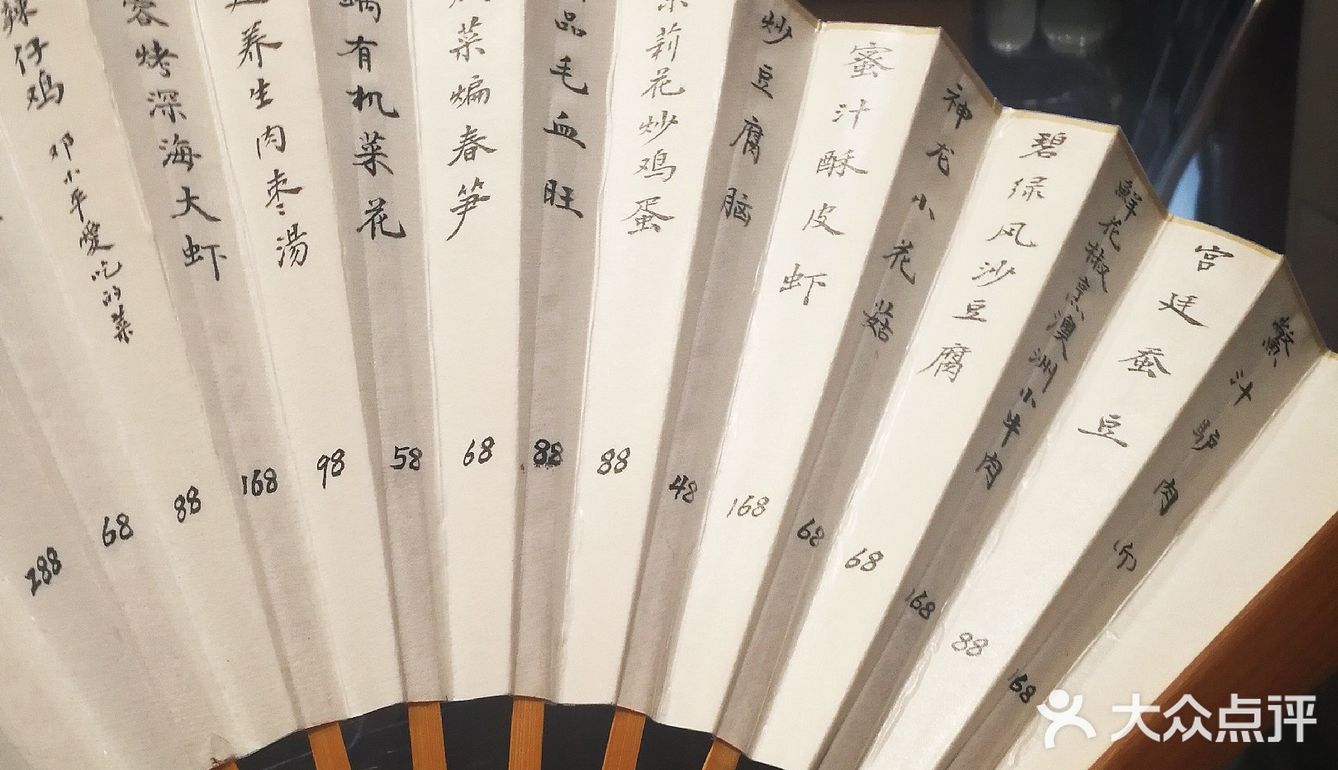 鱉汁驴肉
168
宫廷蚕豆
88
鮮花椒烹澳洲小牛肉
168
碧绿风沙豆腐
68
神龙小花菇
68
蜜汁酥皮虾
168
炒豆腐脑
48
莉花炒鸡蛋
88
品毛血旺
88
菜煸春笋
68
有机菜花
58
养生肉枣湯
98
蓉烤深海大虾
168
辣仔鸡 邓小平愛吃的菜
88
68
288
大众点评